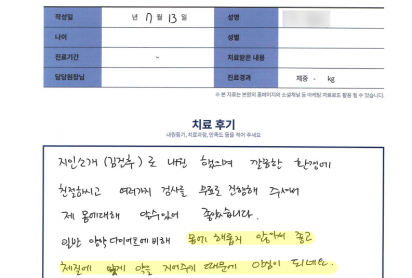 작성일 년 7 월 13 일 성명
나이 성별
진료기간 - 치료받은 내용
담당원장님 진료경과 체중 - kg
※ 본 자료는 본원의 홈페이지와 소셜채널 등 마케팅 자료로도 활용 될 수 있습니다.
치료 후기
내원동기, 치료과정, 만족도 등을 적어 주세요
지인소개 (김건우) 로 내원 했으며 깔끔한 환경에
친절하시고 여러가지 검사를 무료로 진행해 주셔서
제 몸에대해 알수있어 좋았습니다.
일반 양약 다이어트에 비해 몸에 해롭지 않아서 좋고
체질에 맞게 약을 지어주기 때문에 안심이 되네요.